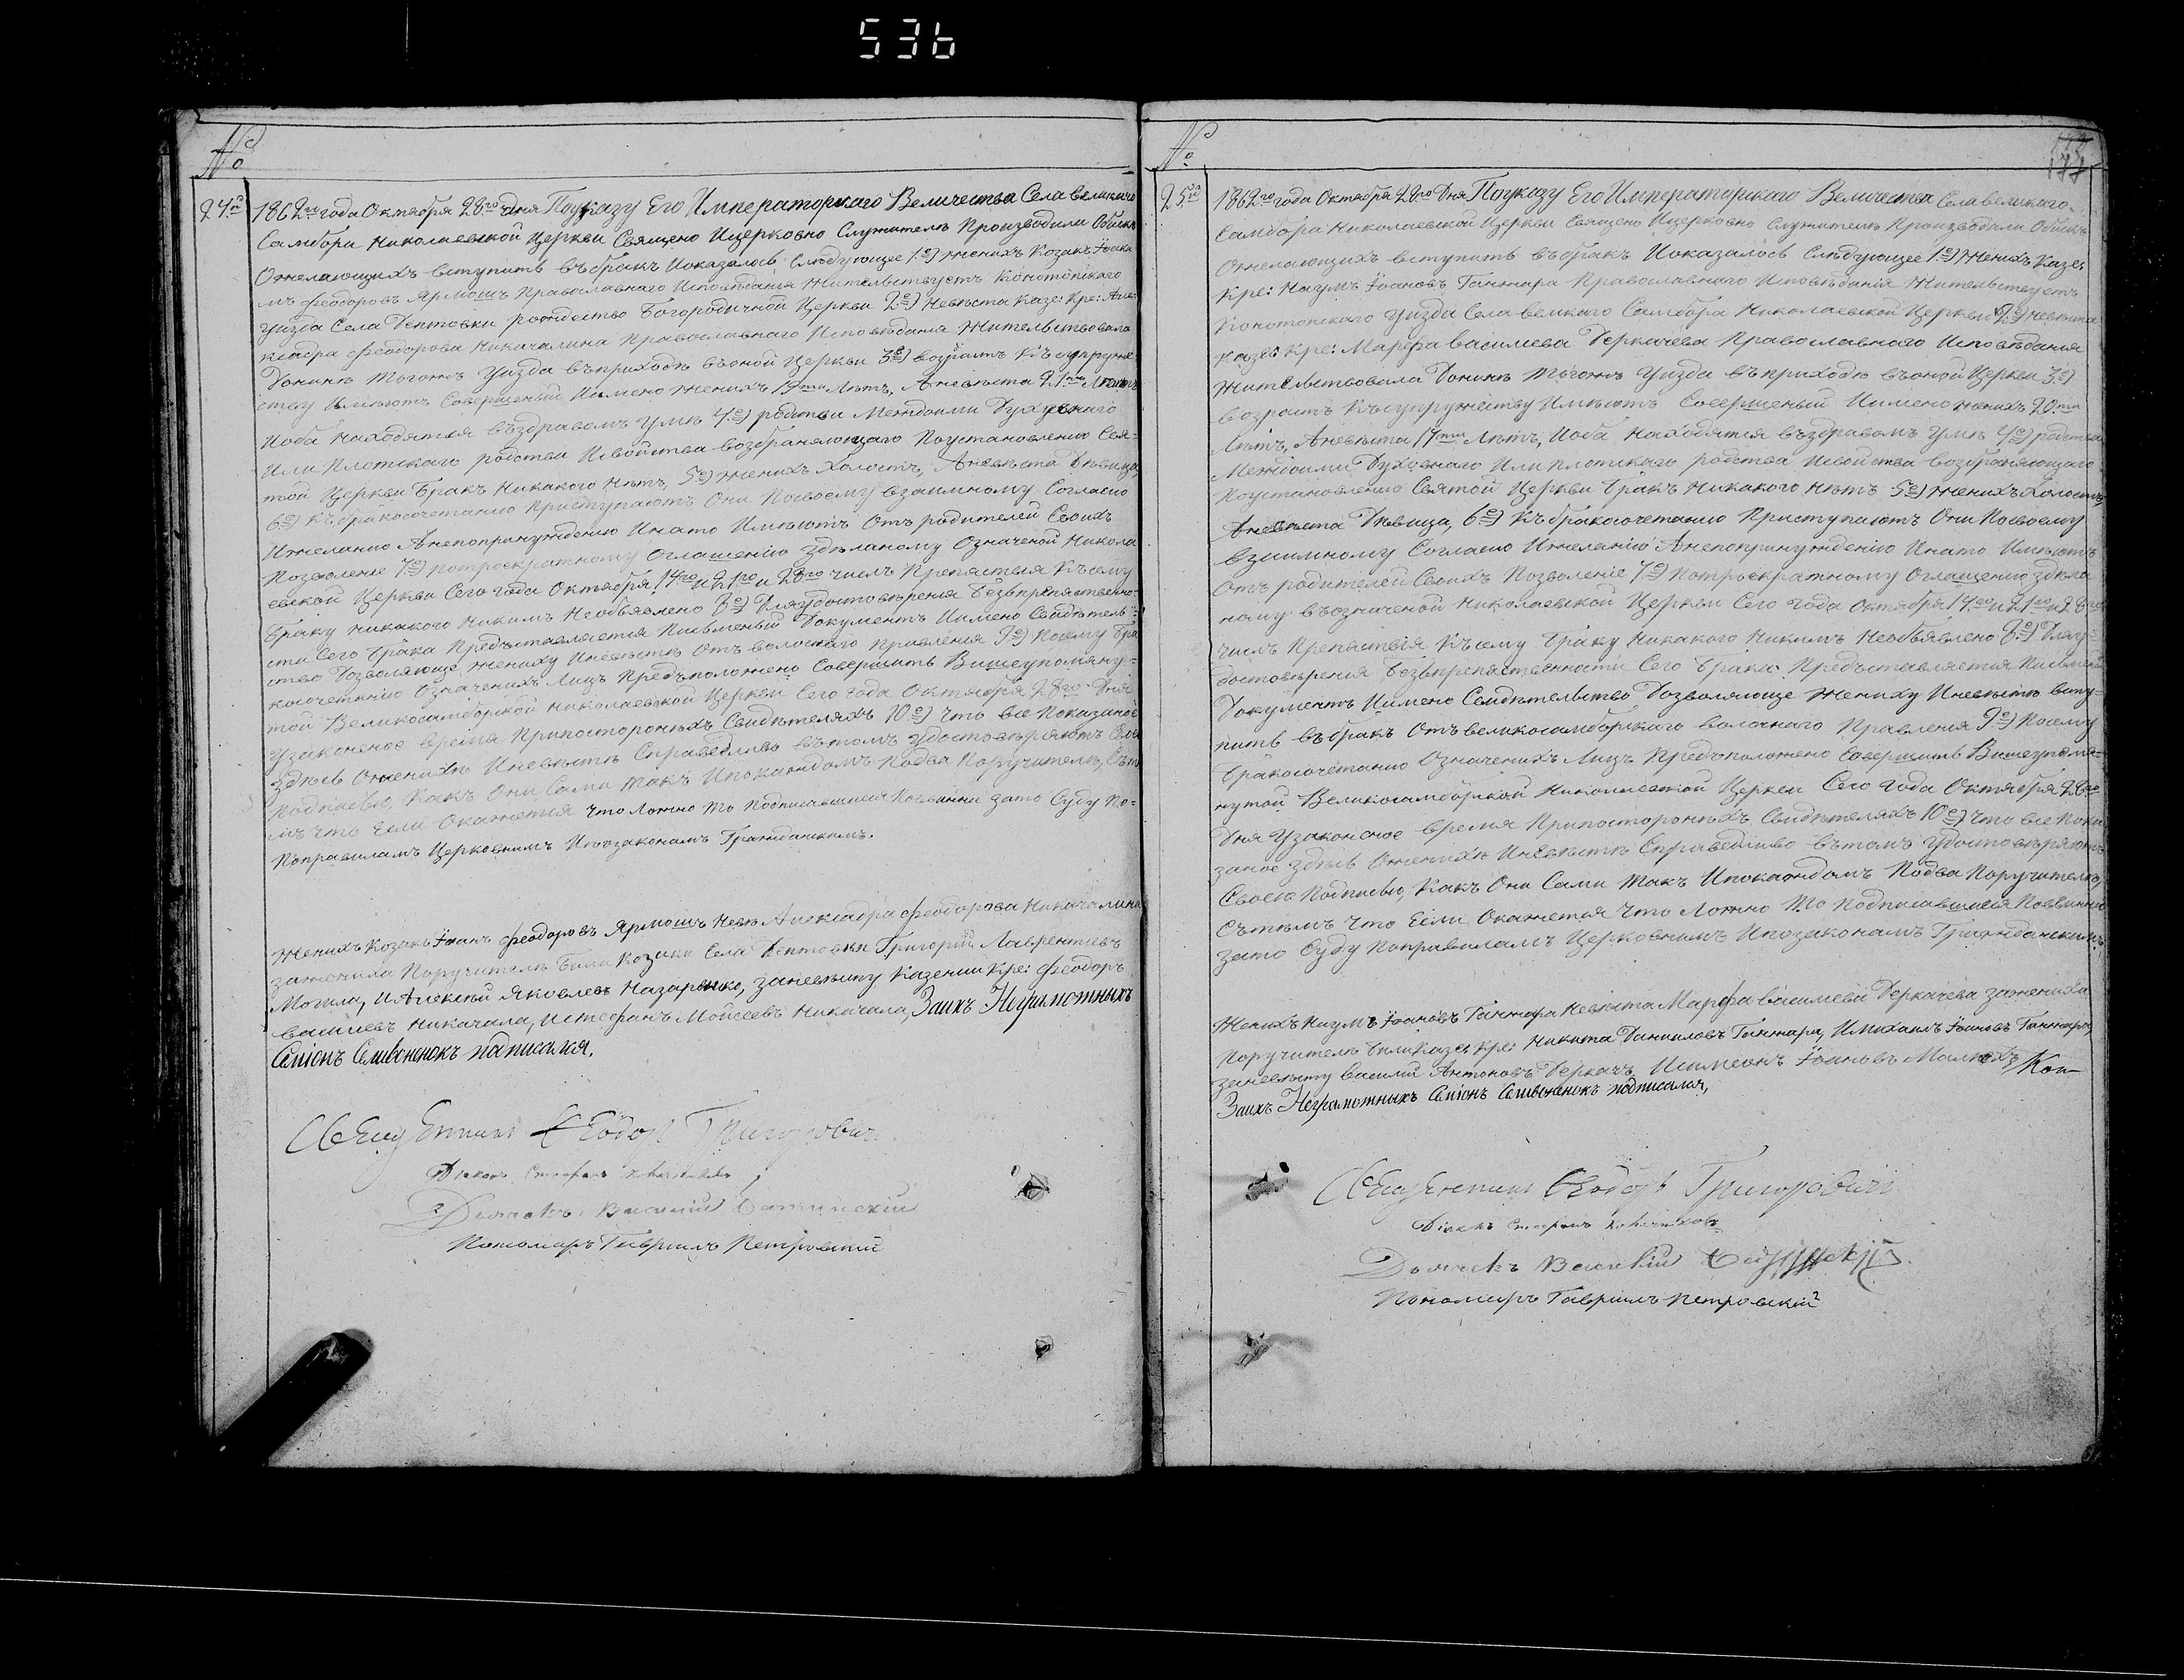 536
№
24й
1862го года Октября 28го дня Поуказу Его Императорскаго Величества Села великаго
Самбора Николаевской Церкви Священо Ицерковно Служители Производили Обыскъ
Ожелающихъ вступить въбракъ Иоказалось Слѣдующее 1е) женихъ Козакъ Іоан
нъ феодоровъ Ярмошъ Православнаго Исповѣданія Жительствуетъ Конотопскаго
Уизда Села Дептовки рождество Богородичной Церкви 2е) Невѣста Казе: Кре: Але:
ксадра феодорова Никачалина Православнаго Исповѣданія Жительствовала
Донинѣ Тогожъ Уизда въприходѣ въоной Церкви 3е) возрастъ Къ супруже
ству Имѣютъ Совершеный Иимено женихъ 19ти Лѣтъ, Аневѣста 21го Лѣтъ
Иоба Находятся въздравомъ Умѣ 4е) родства Междоими Духовнаго
Или Плотскаго родства Исвойства возбраняющаго Поустановлению Свя-
той Церкви Бракъ Никакого Нѣтъ, 5е) женихъ Холостъ, Аневѣста Дѣвица,
6е) Къбракосочетанию Приступаютъ Они Посвоему взаимному Согласию
Ижеланию Анепопринуждению Инато Имѣютъ Отъ родителей Своихъ
Позволение 7е) Потроекратному Оглашению здѣланому Означеной Никола
евской Церкви Сего года Октября 14го и 21го и 28го числъ Препяствия Къ сему
Браку Никакого Никимъ Необъявлено 8е) Дляудостовѣрения Безъпрепятственно-
сти Сего Брака Предъставляется Письменый Документъ Иимено Свидѣтель-
ство Дозволяюще жениху Иневѣстѣ Отъ волостаго Правления 9е) Посему Бра
косочетанию Означенихъ Лицъ Предъположено Совершить Вишеупомяну-
той Великосамборской Николаевской Церкви Сего года Октября 28го Дня
Узаконеное время Припостороныхъ Свидѣтеляхъ 10е) Что все Показаное
здѣсь Оженихѣ Иневѣстѣ Справедливо въ томъ Удостовѣряютъ Сво
Подписью, Какъ Они Сами такъ Ипокаждомъ Подва Поручителя, Сътѣ
мъ что Если Окажется что Ложно То Подписавшиеся Повинни зато Суду По-
Поправиламъ Церковнимъ Ипозаконамъ Гражданскимъ.
Женихъ Козакъ Іоанъ феодоровъ Ярмошъ Невѣ Александра феодорова Никачалина
зажениха Поручителѣ Били Козаки Села Дептовки Григорий Лаврентиевъ
Могила, и Алексѣй Яковлевъ Назаренко, заневѣсту Казении Кре: феодоръ
василиевъ Никачала, Истефанъ Мойсеевъ Никачала, Заихъ Неграмотныхъ
Семіонъ Семвоненокъ подписался.
Священникъ Феодоръ Григоровичъ
Діаконъ Стефанъ
Дьячекъ Василий
Пономаръ Гавриилъ Петровский
№
177
25й
1862го года Октября 28го Дня Поуказу Его Императорскаго Величества Села великаго
Самбора Николаевской Церкви Священо Ицерковно Служители Производили Обыскъ
Ожелающихъ вступить въбракъ Иоказалось Слѣдующее 1е) Женихъ Казе:
Кре: Наумъ Іоановъ Ганжара Православнаго Исповѣдания Жительствуетъ
Конотопскаго Уизда Села великаго Самбора Николаевской Церкви 2е) невѣста
Казе: Кре: Марфа василиева Деркачева Православнаго Исповѣдания
Жительствовала Донинѣ Тогожъ Уизда въприходѣ въоной Церкви 3е)
возрастъ Къ супружеству Имѣютъ Совершеный Иимено женихъ 20ти
Лѣтъ, Аневѣста 17ти Лѣтъ, Иоба Находятся въздравомъ Умѣ 4е) родства
Междоими Духовнаго Или плотскаго родства Исвойства возбраняющаго
Поустановлению Святой Церкви Бракъ Никакого Нѣтъ 5е) Женихъ Холостъ,
Аневѣста Дѣвица, 6е) Къбракосочетанию Приступаютъ Они Посвоему
взаимному Согласию Ижеланию Анепопринуждению Инато Имѣютъ
Отъ родителей Своихъ Позволение 7е) Потроекратному Оглашению здѣла
ному въозначеной Николаевской Церкви Сего года Октября 14го и 21го и 28го
числъ Препяствия Къ сему Браку Никакого Никимъ Необъявлено 8е) Дляу-
достовѣрения Безъпрепятственности Сего Брака Предъставляется Письменый
Документъ Иимено Свидѣтельство Дозволяюще Жениху Иневѣстѣ всту-
пить въбракъ Отъ великосамборскаго волостнаго Правления 9е) Посему
Бракосочетанию Означенихъ Лицъ Предъположено Совершить Вишеупомя-
нутой Великосамборской Николаевской Церкви Сего года Октября 28го
Дня Узаконеное время Припостороныхъ Свидѣтеляхъ 10е) Что все Пока
заное здѣсь Оженихѣ Иневѣстѣ Справедливо въ томъ Удостовѣряютъ
Своею Подписью, Какъ Они Сами такъ Ипокаждомъ Подва Поручителя,
Сътѣмъ что Если Окажется что Ложно То Подписавшиеся Повинни
зато Суду Поправиламъ Церковнимъ Ипозаконамъ Гражданскимъ.
Женихъ Наумъ Іоановъ Ганжара Невѣста Марфа василиева Деркачева зажениха
Поручителѣ Били Казе: Кре: Никита Данииловъ Ганжара, Имихаилъ Іоановъ Ганжара,
заневѣсту василий Антоновъ Деркачъ, Исимеонъ Іоановъ Малюхъ
Заихъ Неграмотныхъ Семіонъ Семвоненокъ подписался,
Священникъ Феодоръ Григоровичъ
Діаконъ Стефанъ
Дьячекъ Василий
Пономаръ Гавриилъ Петровский